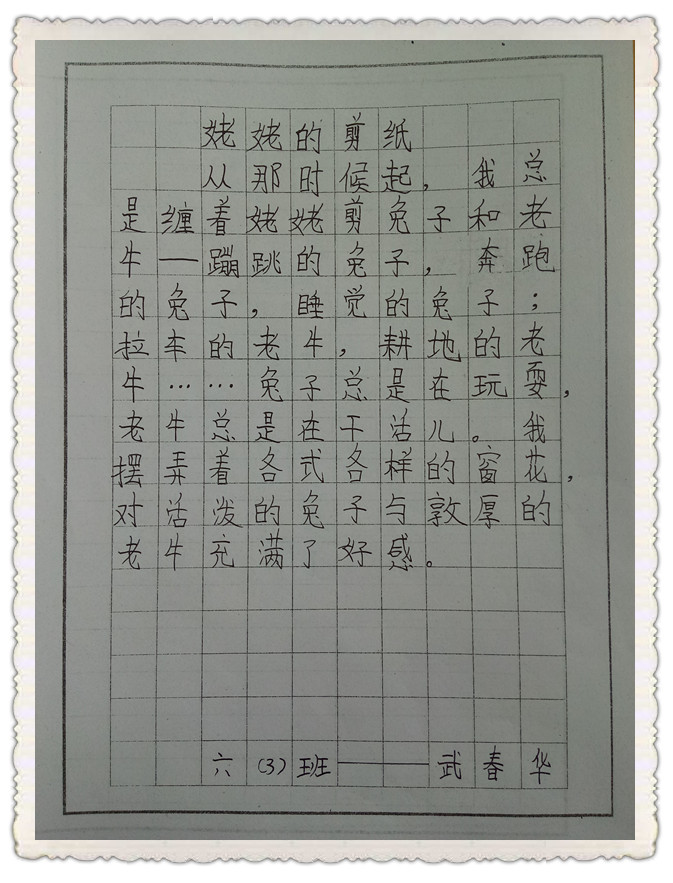 姥姥的剪纸
从那时候起，我总
是缠着姥姥剪兔子和老
牛—蹦跳的兔子，奔跑
的兔子，睡觉的兔子；
拉车的老牛，耕地的老
牛……兔子总是在玩耍，
老牛总是在干活儿。我
摆弄着各式各样的窗花，
对活泼的兔子与敦厚的
老牛充满了好感。
六（3）班——武春华